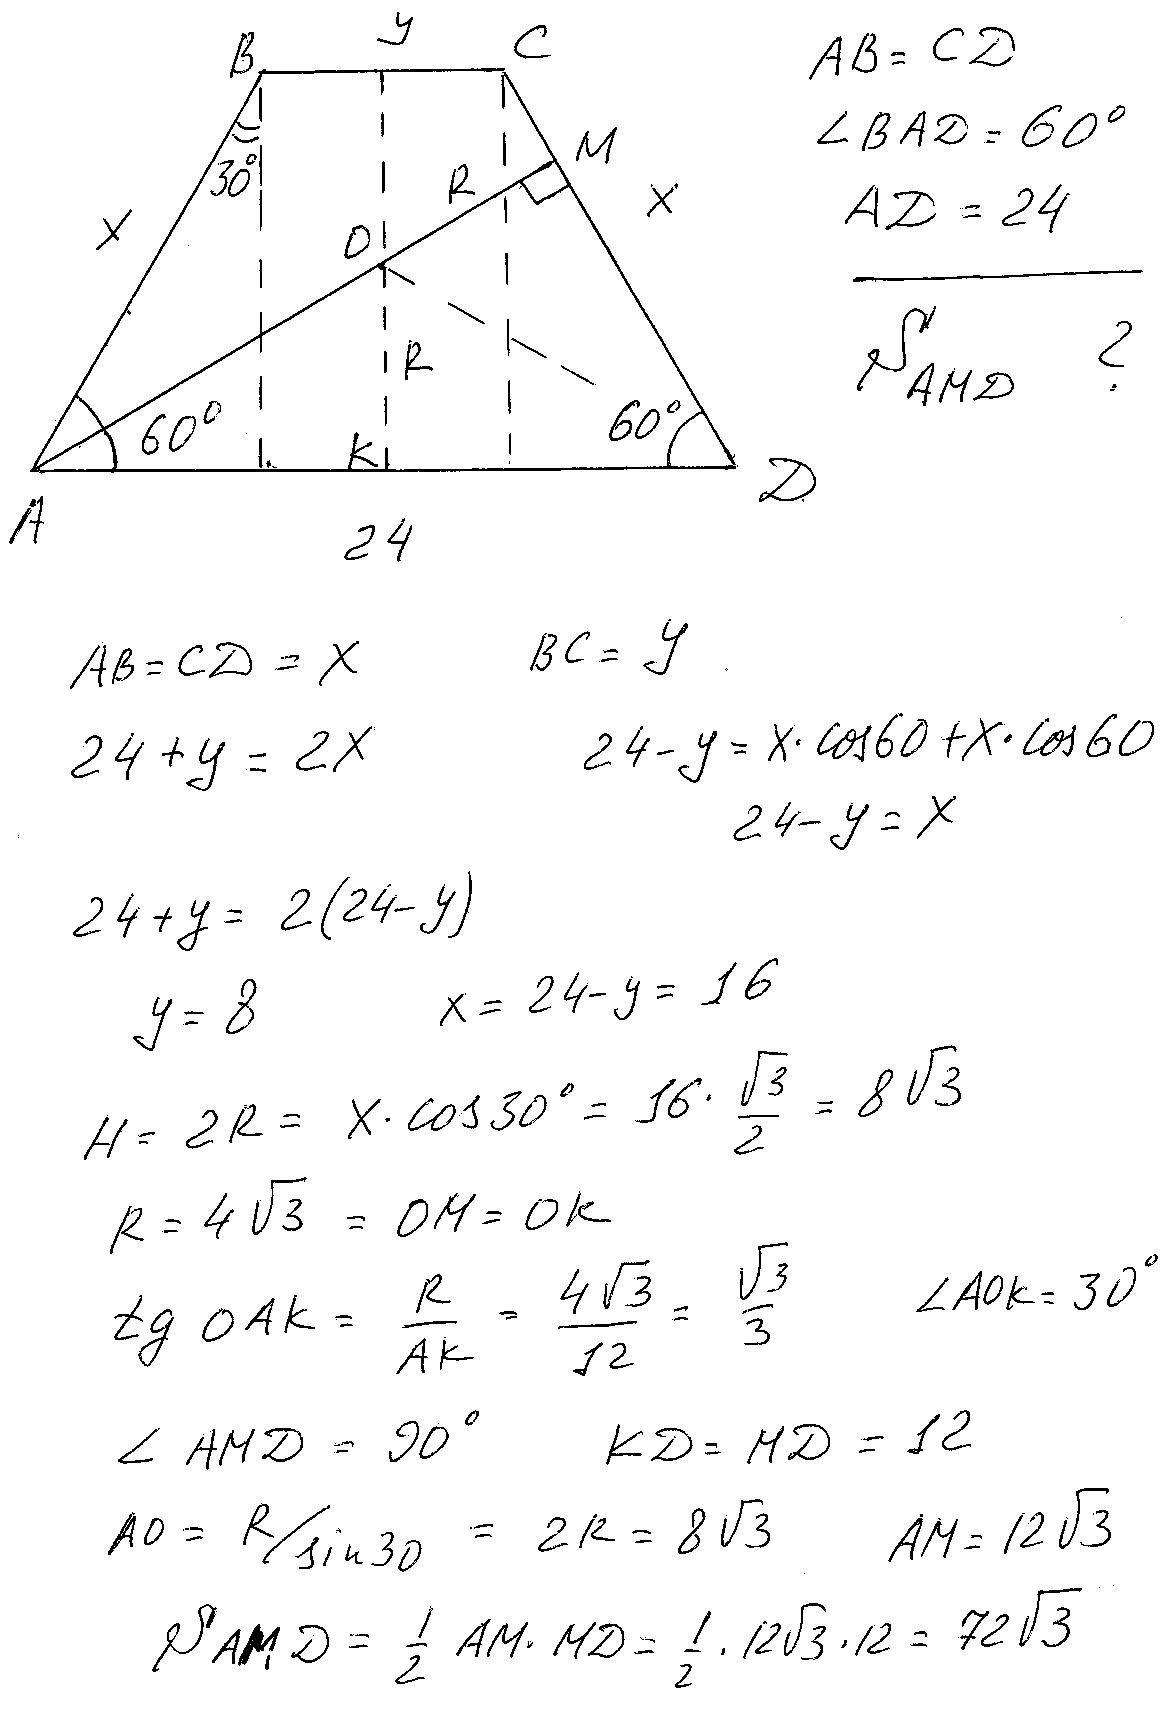 B y C
30° R M
X O X
R
60° K 60°
A 24 D
AB = CD
∠BAD = 60°
AD = 24
S AMD ?
AB = CD = X BC = y
24 + y = 2X 24 - y = X · cos60 + X · cos60
24 - y = X
24 + y = 2(24 - y)
y = 8 x = 24 - y = 16
H = 2R = X · cos30° = 16 · √3/2 = 8√3
R = 4√3 = OM = OK
tg OAK = R/AK = 4√3/12 = √3/3 ∠AOK = 30°
∠AMD = 90° KD = MD = 12
AO = R/sin30 = 2R = 8√3 AM = 12√3
S AMD = 1/2 AM · MD = 1/2 · 12√3 · 12 = 72√3